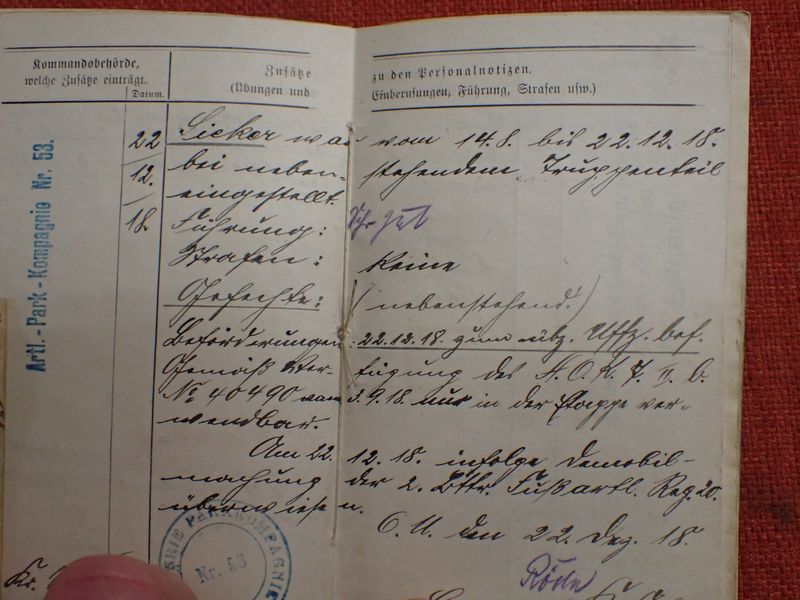 Kommandobehörde,
welche Zusätze einträgt.
Datum.
Zusätze zu den Personalnotizen.
(Übungen und Einberufungen, Führung, Strafen usw.)
Artl.-Park-Kompagnie Nr. 53.
22
12.
18.
Sieker war vom 14.8. bis 22.12.18.
bei nebenstehendem Truppenteil
eingestellt.
Führung: Sehr gut
Strafen: Keine
Gefechte: (nebenstehend.)
Beförderungen: 22.12.18. zum übz. Uffz. bef.
Gemäß Verfügung des A.O.K. 7. II. b.
No 40490 vom 3.9.18. nur in der Etappe ver-
wendbar.
Am 22.12.18. infolge Demobil-
machung der 2. Bttr. Fußartl. Reg. 20.
überwiesen.
O.U. den 22. Dez. 18.
PARKKOMPAGNIE
Nr. 53